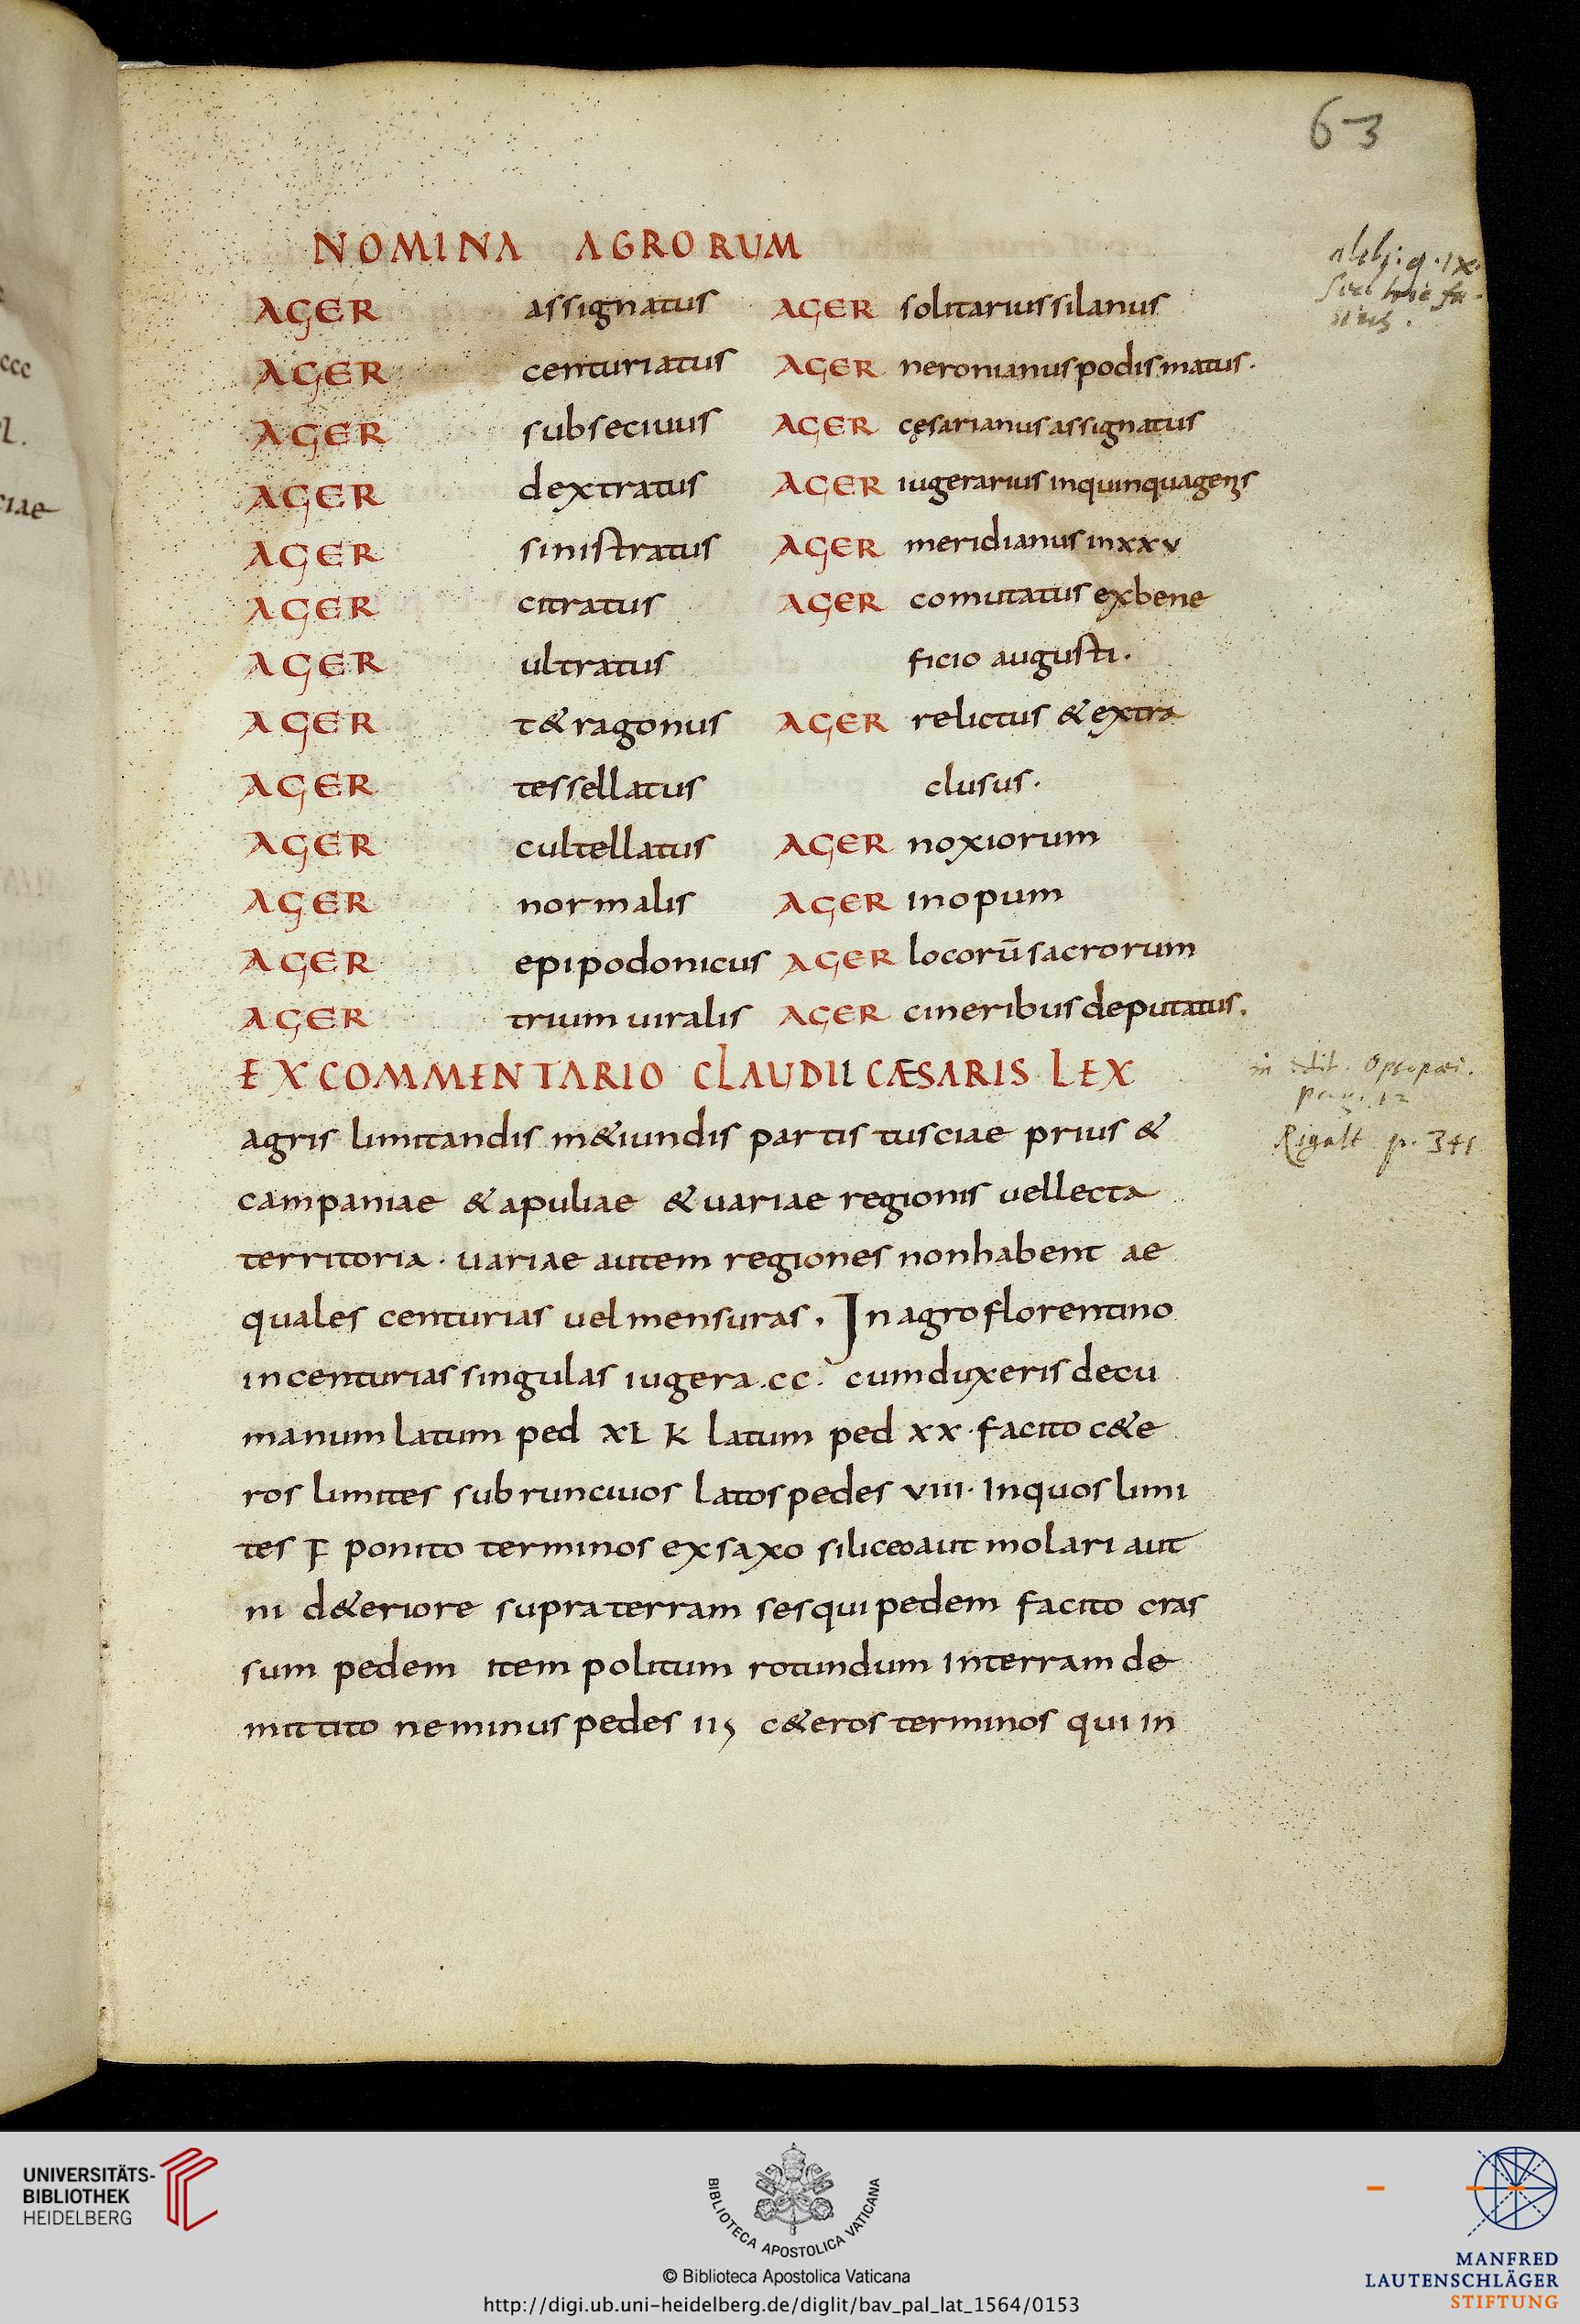 63
NOMINA AGRORUM
AGER assignatus
AGER centuriatus
AGER subseciuus
AGER dextratus
AGER sinistratus
AGER citratus
AGER ultratus
AGER t&ragonus
AGER tessellatus
AGER cultellatus
AGER normalis
AGER epipodonicus
AGER trium uiralis
AGER solitarius silanus
AGER neronianus podismatus.
AGER cęsarianus assignatus
AGER iugerarius inquinquagen
AGER meridianus inxxv
AGER comutatus exbene
ficio augusti.
AGER relictus & extra
clusus.
AGER noxiorum
AGER inopum
AGER locorū sacrorum
AGER cineribus deputatus.
EX COMMENTARIO CLAUDII CÆSARIS LEX
agris limitandis m&iundis partis tusciae prius &
campaniae & apuliae & uariae regionis uellecta
territoria. uariae autem regiones nonhabent ae
quales centurias uel mensuras. In agro florentino
incenturias singulas iugera .cc. cum duxeris decu
manum latum ped XL K latum ped xx. facito c&e
ros limites subrunciuos latos pedes VIII. Inquos limi
tes ponito terminos exsaxo siliceo aut molari aut
ni d&eriore supraterram sesquipedem facito cras
sum pedem item politum rotundum interram de
mittito neminus pedes c&eros terminos qui in
in edit. Opsopœi.
pag. 12
Rigalt p. 341
UNIVERSITÄTS-
BIBLIOTHEK
HEIDELBERG
BIBLIOTECA APOSTOLICA VATICANA
© Biblioteca Apostolica Vaticana
http://digi.ub.uni-heidelberg.de/diglit/bav_pal_lat_1564/0153
MANFRED
LAUTENSCHLÄGER
STIFTUNG